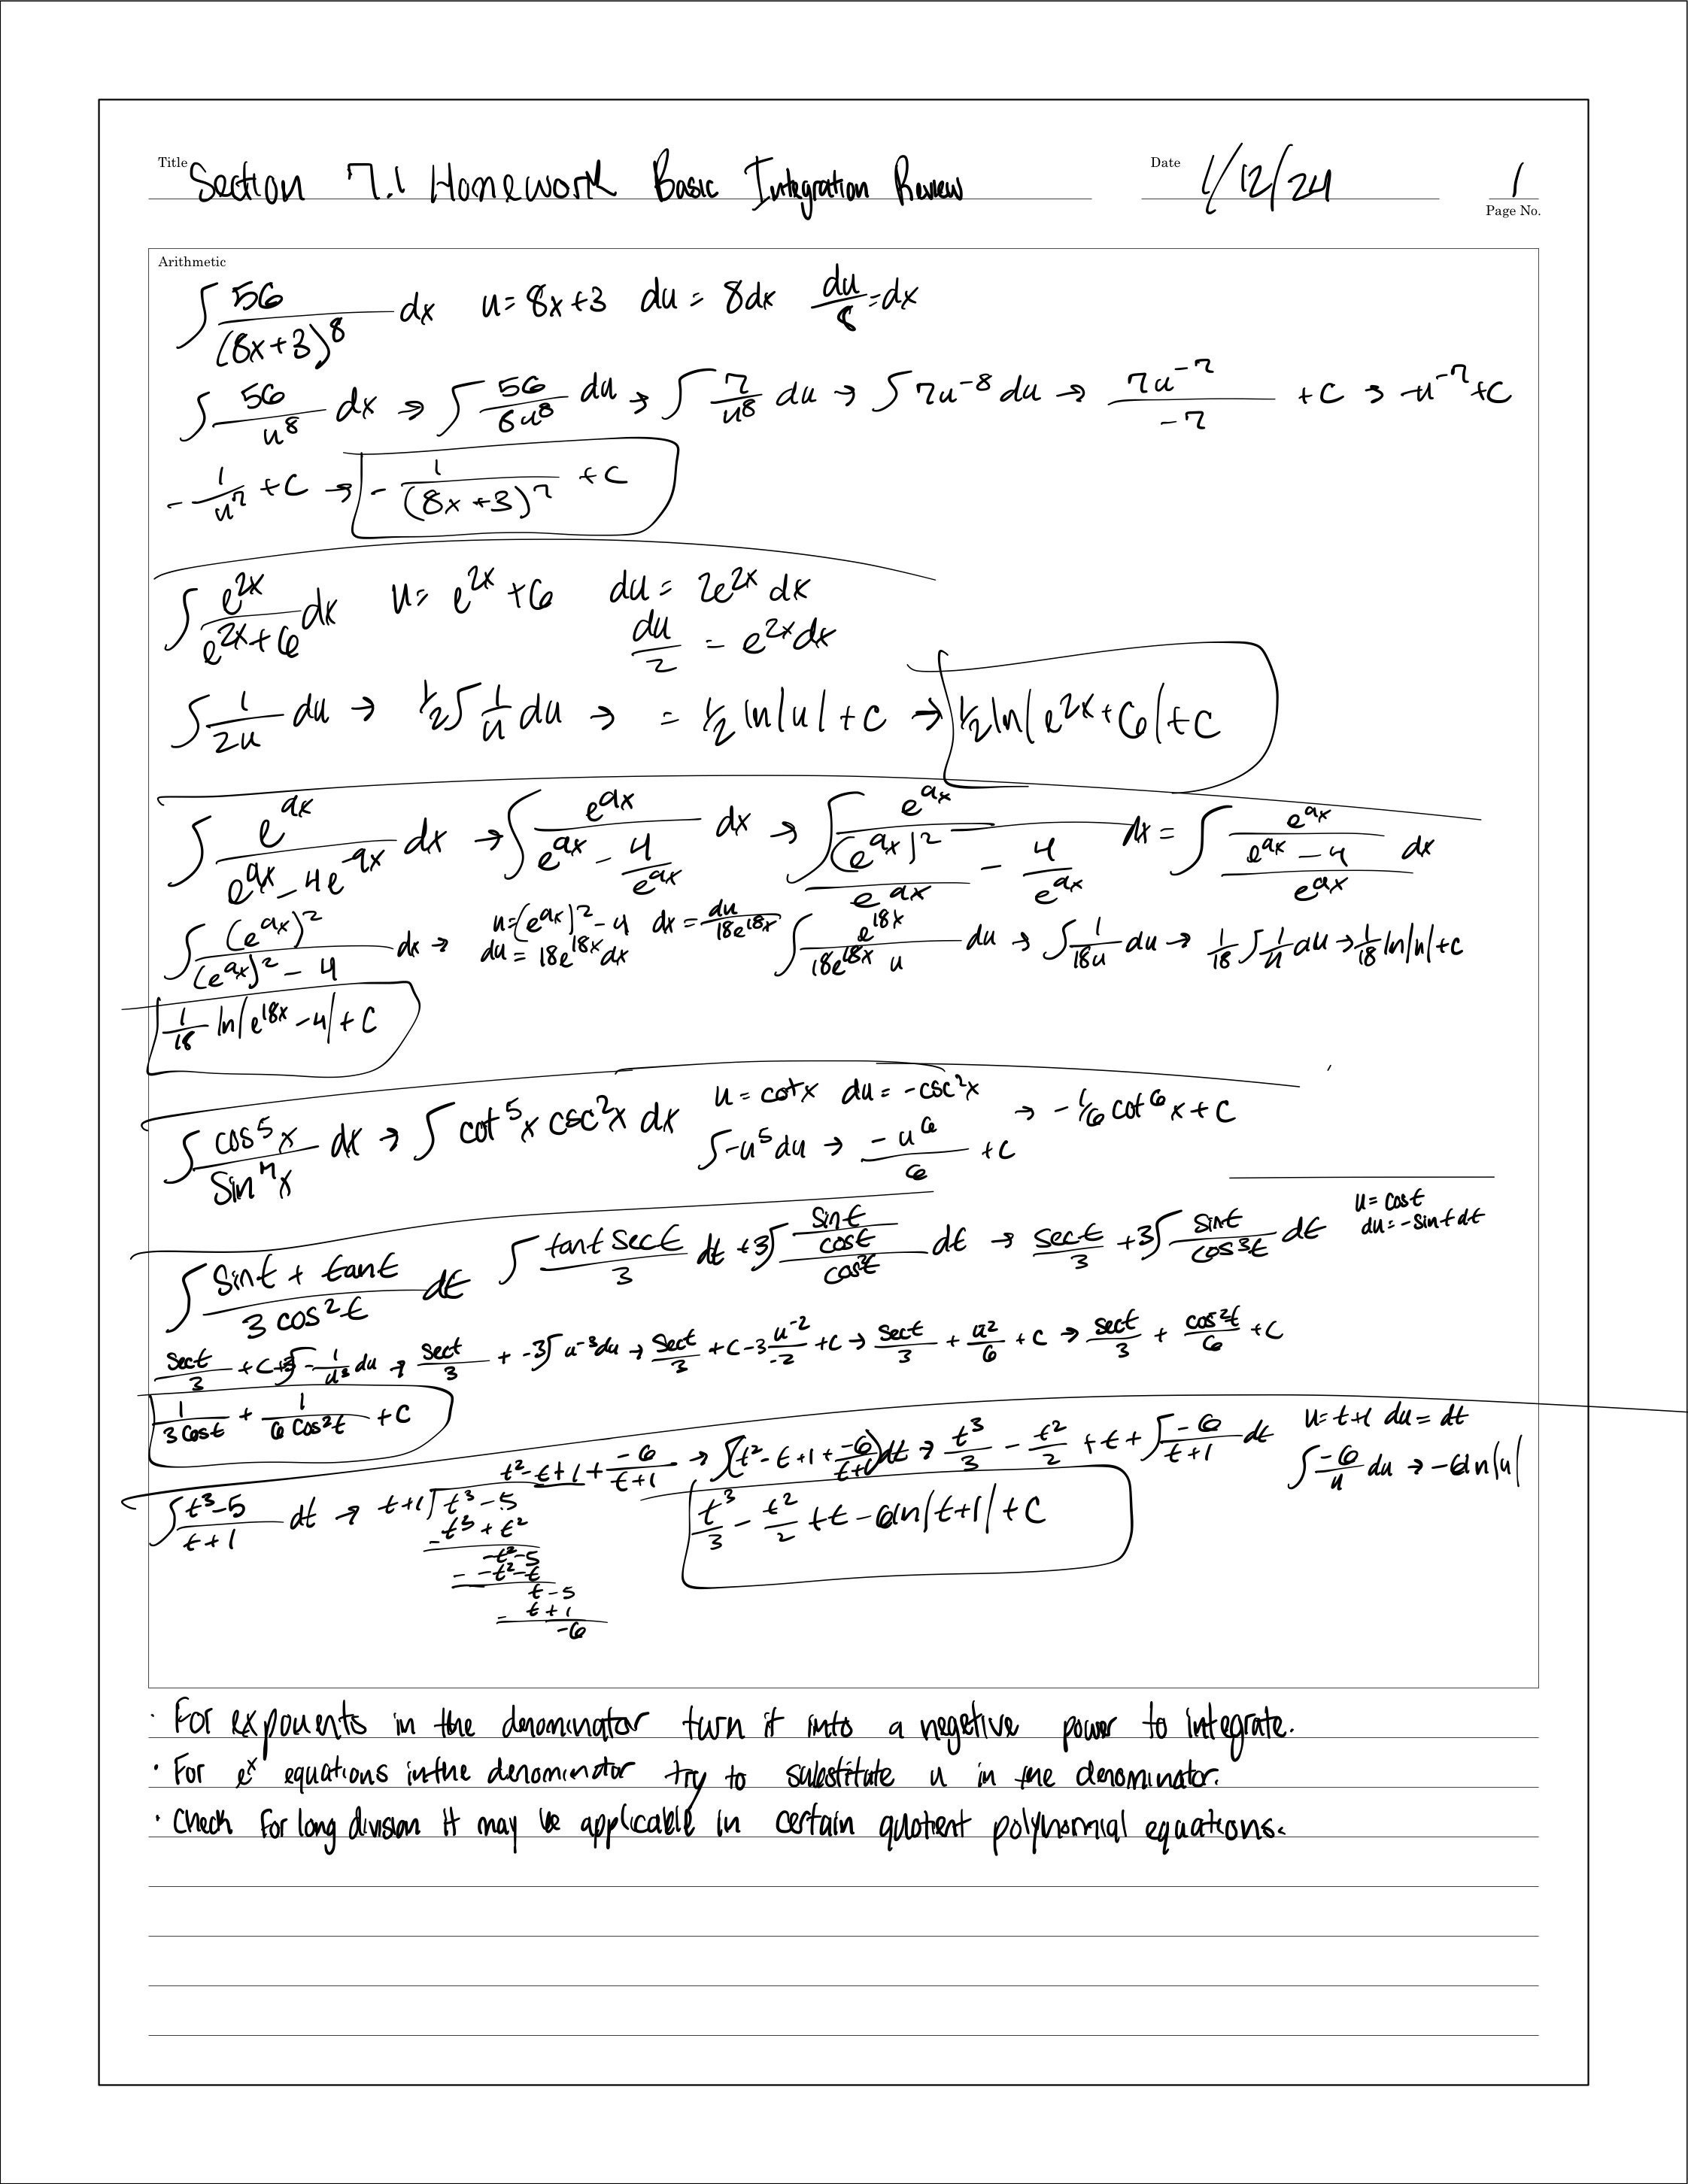 Title Section 7.1 Homework Basic Integration Review Date 1/12/24 1
Page No.
Arithmetic
∫ 56/(8x+3)^8 dx u= 8x+3 du = 8dx du/8 =dx
∫ 56/u^8 dx → ∫ 56/8u^8 du → ∫ 7/u^8 du → ∫ 7u^-8 du → 7u^-7/-7 +C → -u^-7+C
- 1/u^7 +C → - 1/(8x+3)^7 +C
∫ e^2x/(e^2x+6) dx u= e^2x +6 du = 2e^2x dx
du/2 = e^2x dx
∫ 1/2u du → 1/2 ∫ 1/u du → = 1/2 ln|u| +C → 1/2 ln|e^2x+6|+C
∫ e^9x/(e^9x-4e^-9x) dx → ∫ e^9x/(e^9x - 4/e^9x) dx → ∫ e^9x/((e^9x)^2/e^9x - 4/e^9x) dx = ∫ e^9x/((e^9x - 4)/e^9x) dx
∫ (e^9x)^2/((e^9x)^2 - 4) dx → u=(e^9x)^2-4 dx = du/18e^18x ∫ e^18x/(18e^18x u) du → ∫ 1/18u du → 1/18 ∫ 1/u du → 1/18 ln|u|+C
du = 18e^18x dx
1/18 ln|e^18x - 4|+C
∫ cos^5 x/sin^7 x dx → ∫ cot^5 x csc^2 x dx u = cotx du = -csc^2 x
∫ -u^5 du → -u^6/6 +C → - 1/6 cot^6 x + C
∫ (sint + tant)/(3 cos^2 t) dt ∫ tant sect/3 dt +3∫ (sint/cost)/cos^2 t dt → sect/3 +3∫ sint/cos^3 t dt u= cost
du=-sint dt
sect/3 +C+3∫ - 1/u^3 du → sect/3 + -3∫ u^-3 du → sect/3 +C-3 u^-2/-2 +C → sect/3 + u^2/6 +C → sect/3 + cos^2 t/6 +C
1/3cost + 1/6cos^2 t +C
∫ (t^3-5)/(t+1) dt → t+1)t^3-5 t^2-t+1+ -6/(t+1) → ∫(t^2-t+1+ -6/(t+1))dt → t^3/3 - t^2/2 +t+ ∫ -6/(t+1) dt u=t+1 du=dt
∫ -6/u du → -6ln|u|
-t^3+t^2
-t^2-5
- -t^2-t
t-5
- t+1
-6
t^3/3 - t^2/2 +t-6ln|t+1|+C
· For exponents in the denominator turn it into a negetive power to integrate.
· For e^x equations in the denominator try to substitute u in the denominator.
· Check for long division it may be applicable in certain quotient polynomial equations.